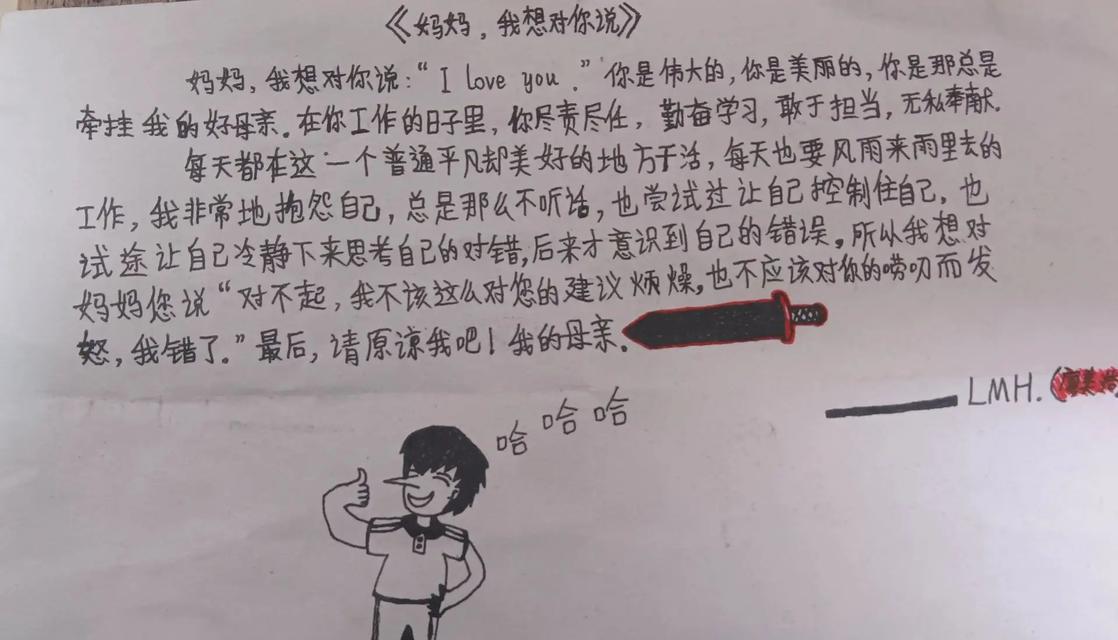 《妈妈，我想对你说》
妈妈，我想对你说：“I love you.”你是伟大的，你是美丽的，你是那总是
牵挂我的好母亲。在你工作的日子里，你尽责尽任，勤奋学习，敢于担当，无私奉献。
每天都在这一个普通平凡却美好的地方干活，每天也要风雨来雨里去的
工作，我非常地抱怨自己，总是那么不听话，也尝试过让自己控制住自己，也
试途让自己冷静下来思考自己的对错，后来才意识到自己的错误。所以我想对
妈妈您说“对不起，我不该这么对您的建议炳燥，也不应该对你的唠叨而发
怒，我错了。”最后，请原谅我吧！我的母亲。
LMH.
哈哈哈